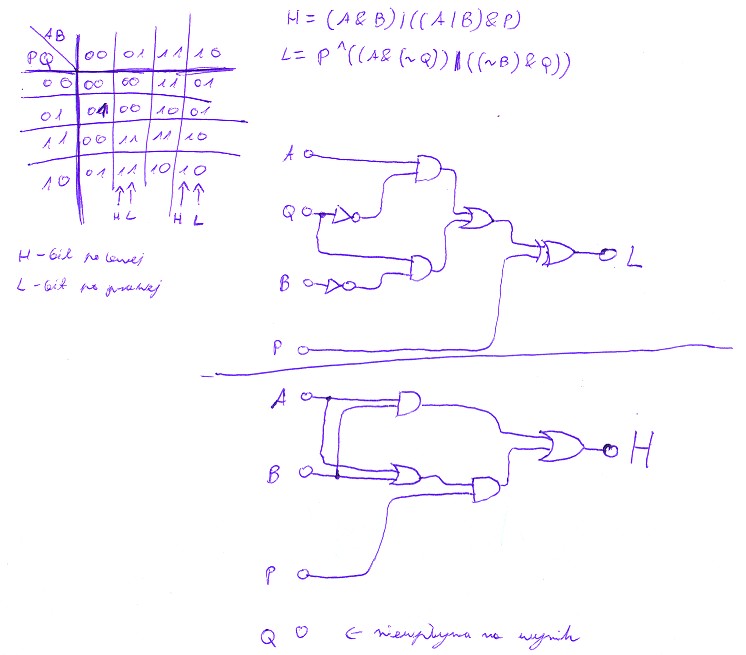 AB
PQ 00 01 11 10
00 00 00 11 01
01 01 00 10 01
11 00 11 11 10
10 01 11 10 10
H L H L
H - bit po lewej
L - bit po prawej
H = (A & B) | ((A | B) & P)
L = P ^ ((A & (~Q)) | ((~B) & Q))
A
Q
B
L
P
A
B
H
P
Q ← niewpływa na wynik